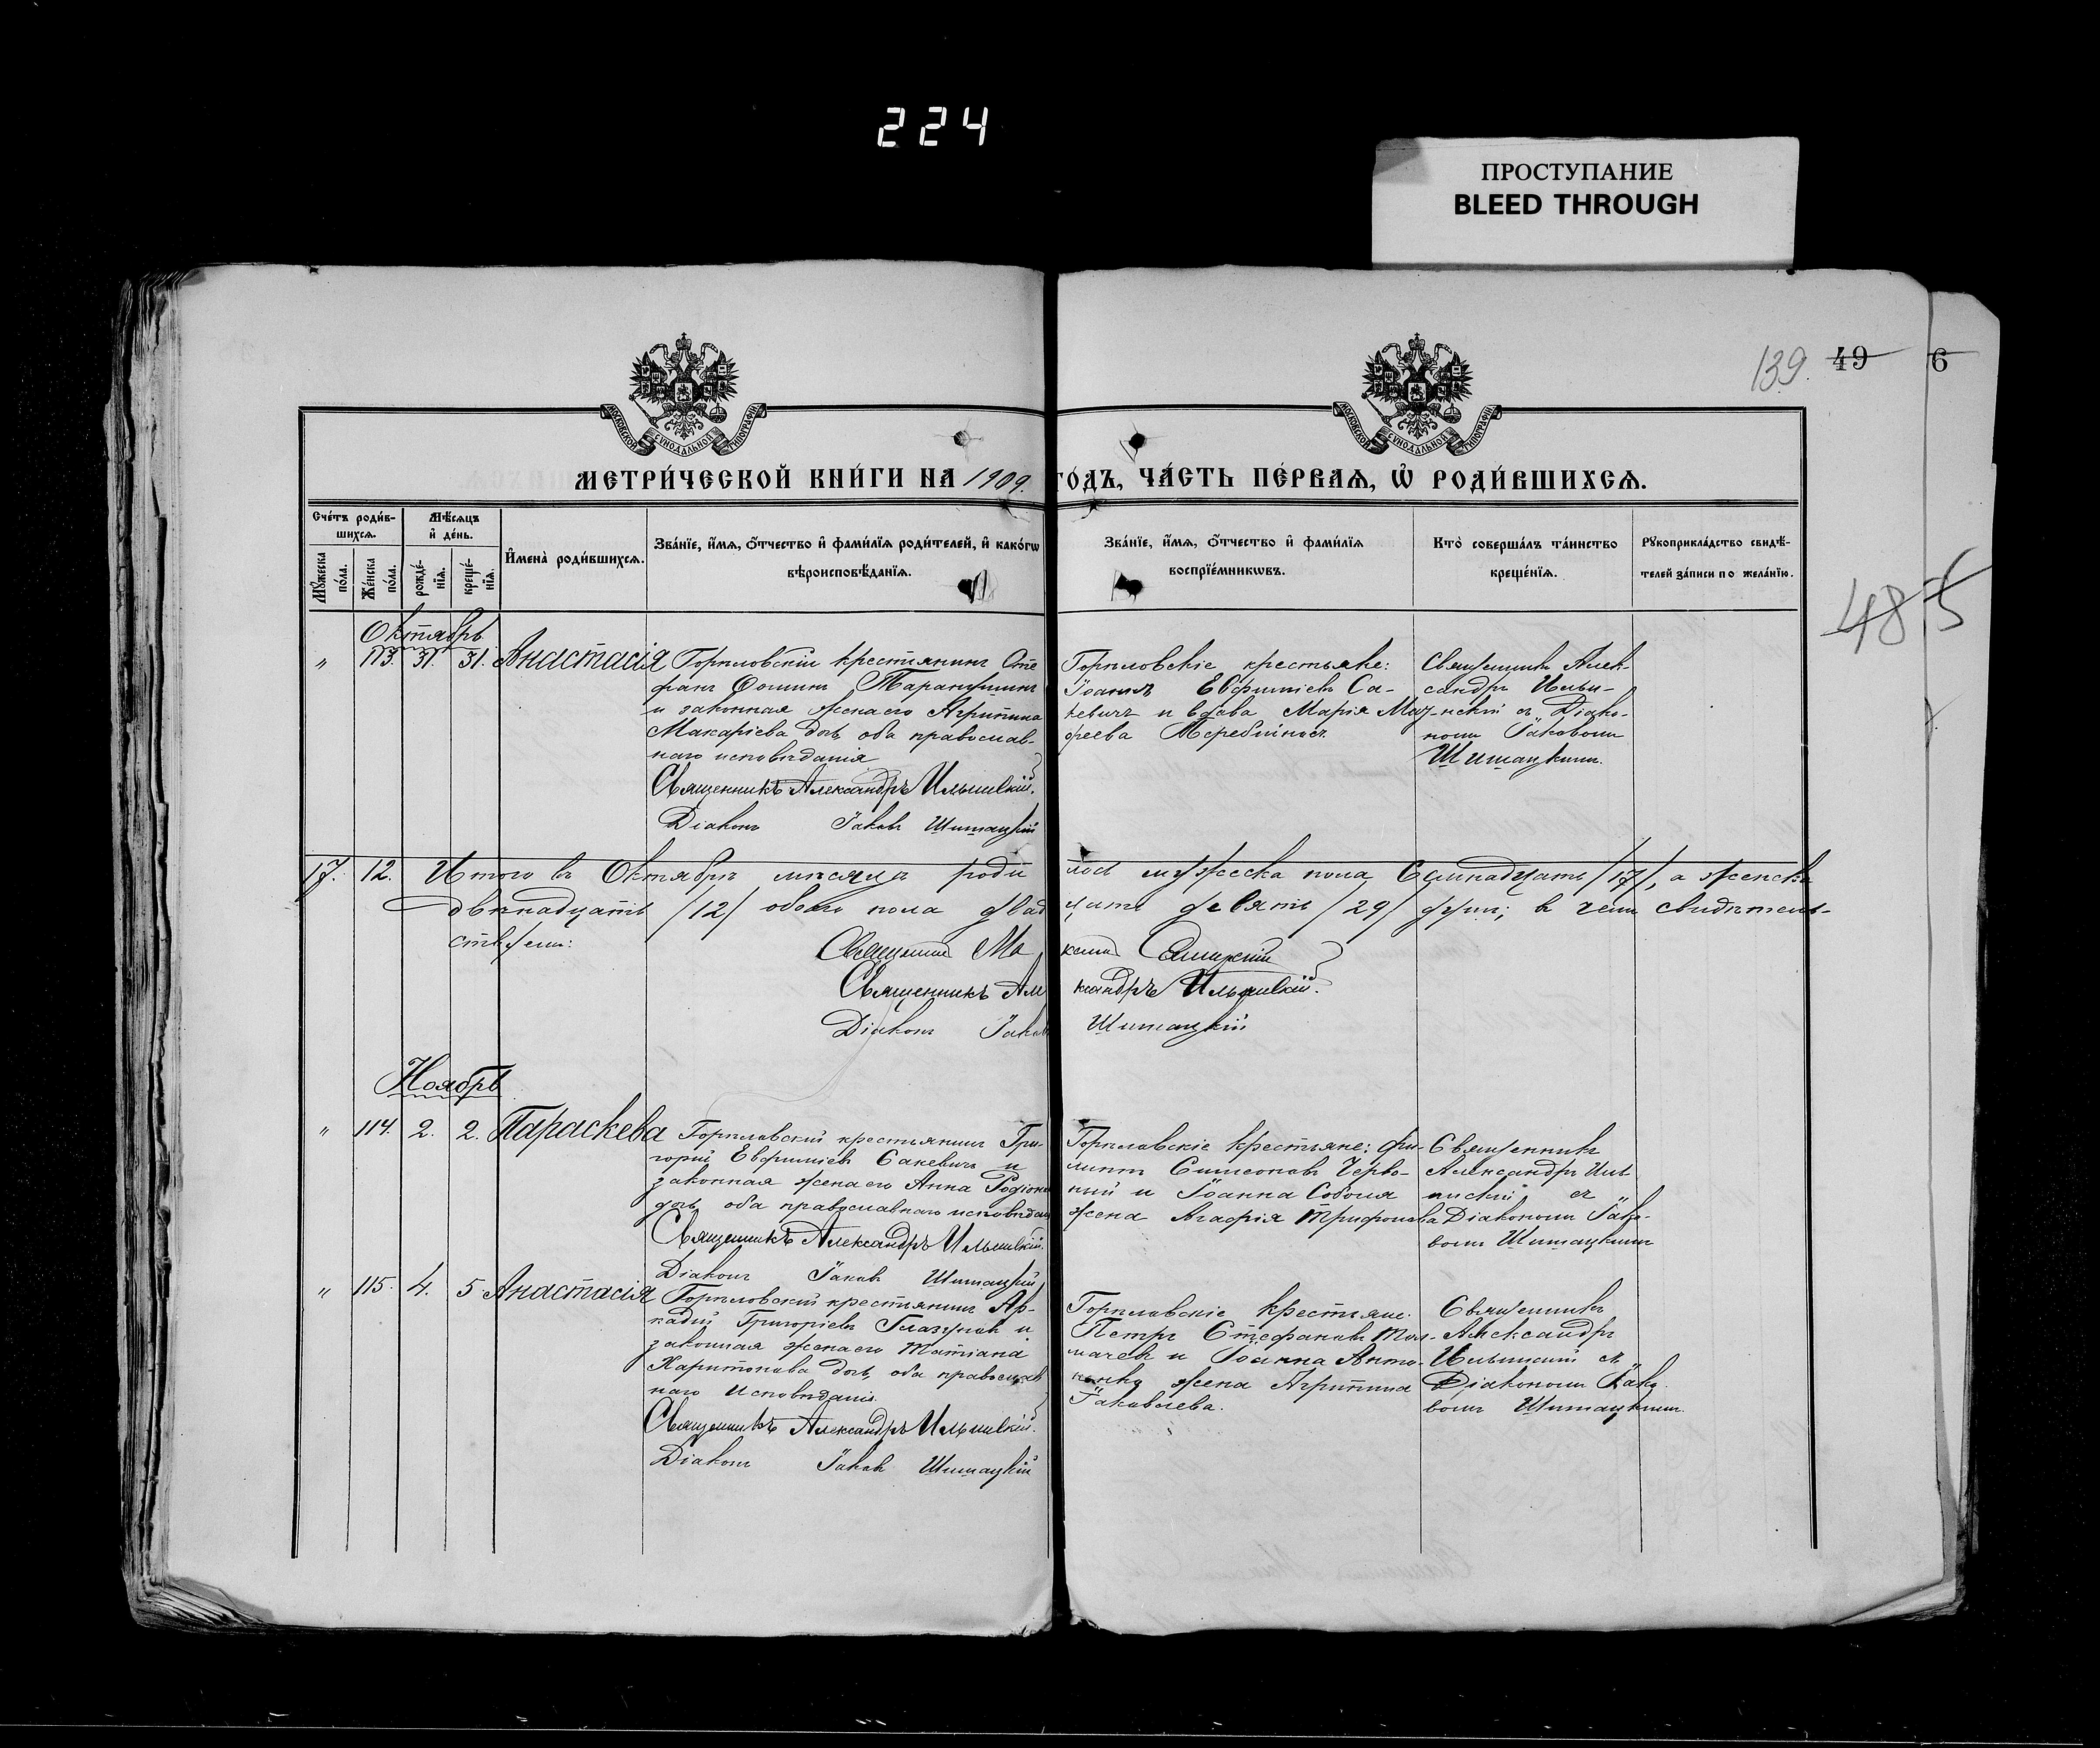 224
ПРОСТУПАНИЕ
BLEED THROUGH
139. 49 6
48 5
МОСКОВСКОЙ СѴНОДАЛЬНОЙ ТИПОГРАФІИ
МОСКОВСКОЙ СѴНОДАЛЬНОЙ ТИПОГРАФІИ
МЕТРИ́ЧЕСКОЙ КНИ́ГИ НА 1909. ГО́ДЪ, ЧА́СТЬ ПЕ́РВАЯ, Ѡ РОДИ́ВШИХСЯ.
Сче́тъ роди́в-
шихся.
Мꙋ́жеска по́ла.
Же́нска по́ла.
Мѣ́сяцъ и҆ де́нь.
рожде́-
нїя.
креще́-
нїя.
И҆мена̀ роди́вшихся.
Зва́нїе, и҆́мя, ѻ҆́тчество и҆ фами́лїя роди́телей, и҆ како́гѡ
вѣроисповѣ́данїя.
Зва́нїе, и҆́мя, ѻ҆́тчество и҆ фами́лїя
воспрїе́мникѡвъ.
Кто̀ соверша́лъ та́инство
креще́нїя.
Рꙋкоприкла́дство свидѣ́-
телей за́писи по жела́нїю.
Октябрь
" 113. 31. 31. Анастасія
крестьянинъ Сте
фанъ Ѳоминъ
и законная жена его Агрипина
Макаріева дочь оба православ-
наго исповѣданія
Священникъ Александръ Ильинскій.
Діаконъ Іаковъ Шишацкій
крестьяне:
Іоаннъ Евфиміевъ Са-
кевичъ и вдова Марія
Священникъ Алек-
сандръ Ильи-
нскій съ Діако-
номъ Іаковомъ
Шишацкимъ.
17. 12. Итого въ Октябрѣ мѣсяцѣ роди лось мужеска пола Семнадцать /17/, а женска
двѣнадцать /12/ обоего пола двад цать девять /29/ душъ; въ чемъ свидѣтель-
ствуемъ:
Священникъ Ма ксимъ
Священникъ Але ксандръ Ильинскій.
Діаконъ Іаков Шишацкій
Ноябрь
" 114. 2. 2. Параскева
крестьянинъ Гри-
горій Евфиміевъ Сакевичъ и
законная жена его Анна Родіоно
дочь оба православнаго исповѣдан
Священникъ Александръ Ильинскій.
Діаконъ Іаковъ Шишацкій
крестьяне: Фи-
липпъ Симеоновъ Черво-
ный и Іоанна Соболя
жена Агафія Трифонова
Священникъ
Александръ Иль
инскій съ
Діакономъ Іако-
вомъ Шишацкимъ
" 115. 4. 5 Анастасія
крестьянинъ Ар-
кадій Григоріевъ Глазуновъ и
законная жена его Татіана
Харитонова дочь, оба православ
наго исповѣданія.
Священникъ Александръ Ильинскій.
Діаконъ Іаковъ Шишацкій
крестьяне:
Петръ Стефановъ Тол-
мачевъ и Іоанна
жена Агрипина
Іаковлева.
Священникъ
Александръ
Ильинскій съ
Діакономъ Іако-
вомъ Шишацкимъ.